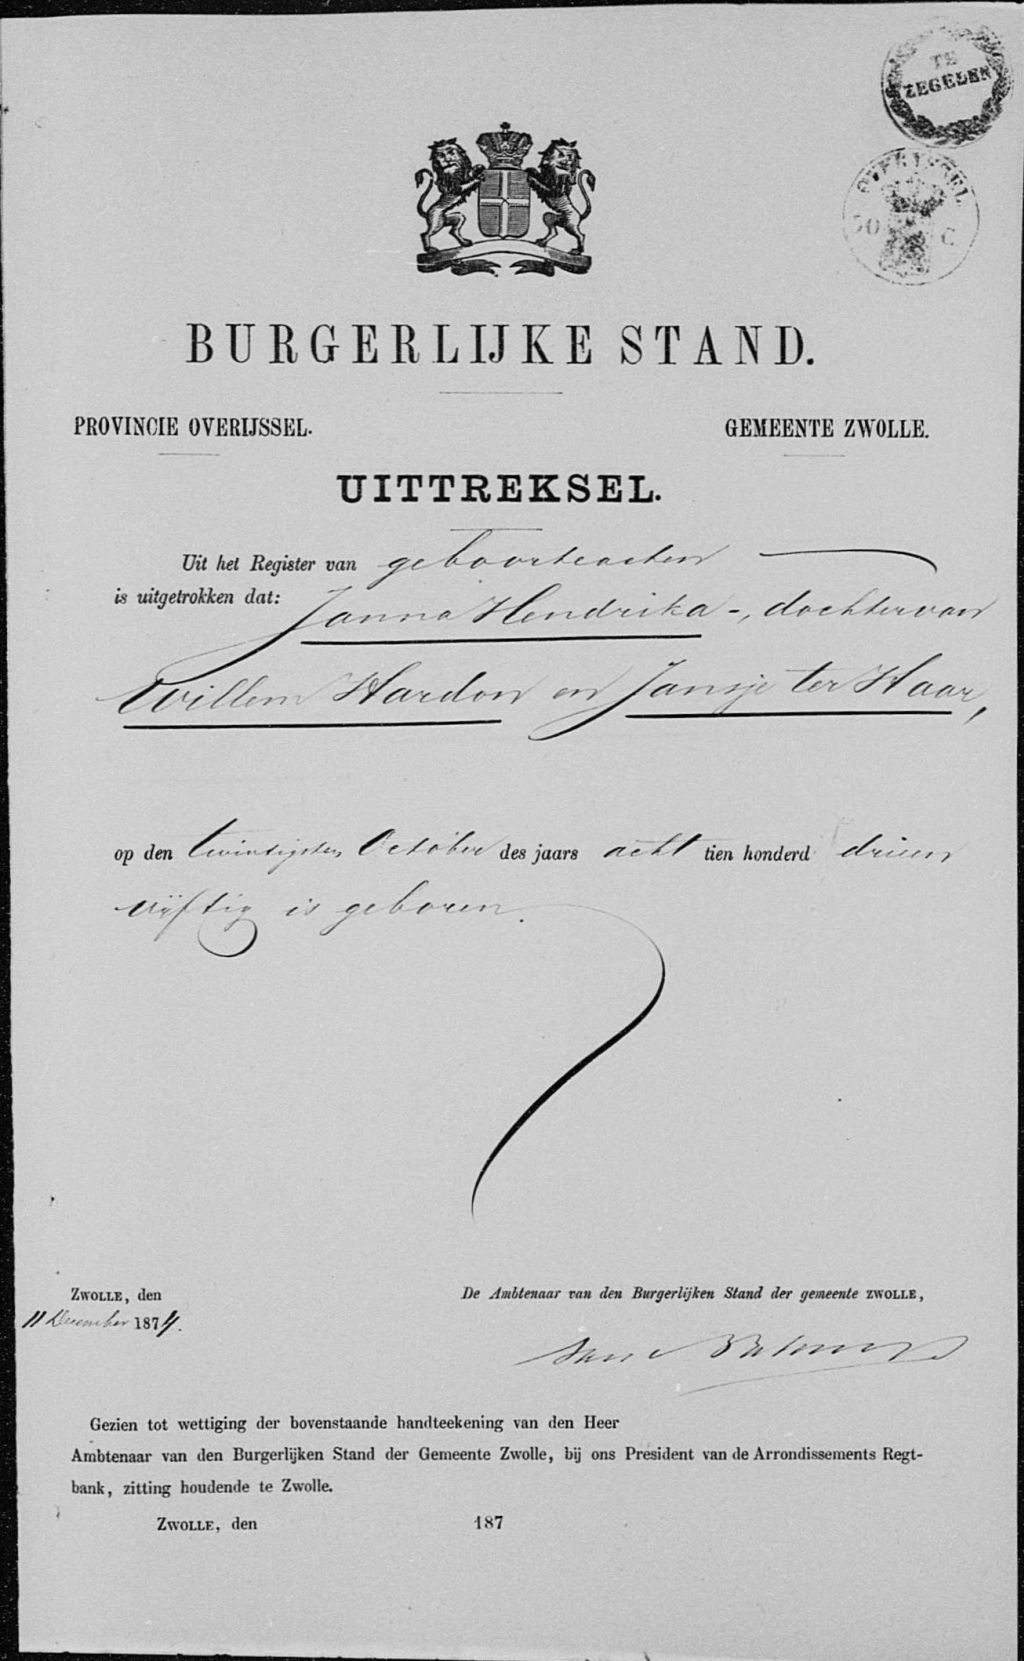 TE
ZEGELEN
OVERIJSSEL
50 C
BURGERLIJKE STAND.
PROVINCIE OVERIJSSEL. GEMEENTE ZWOLLE.
UITTREKSEL.
Uit het Register van geboorteacten
is uitgetrokken dat: Janna Hendrika -, dochter van
Willem Hardon en Jansje ter Haar,
op den twintigsten October des jaars acht tien honderd drieen
vijftig is geboren.
ZWOLLE, den
11 December 1874.
De Ambtenaar van den Burgerlijken Stand der gemeente ZWOLLE,
Gezien tot wettiging der bovenstaande handteekening van den Heer
Ambtenaar van den Burgerlijken Stand der Gemeente Zwolle, bij ons President van de Arrondissements Regt-
bank, zitting houdende te Zwolle.
ZWOLLE, den 187